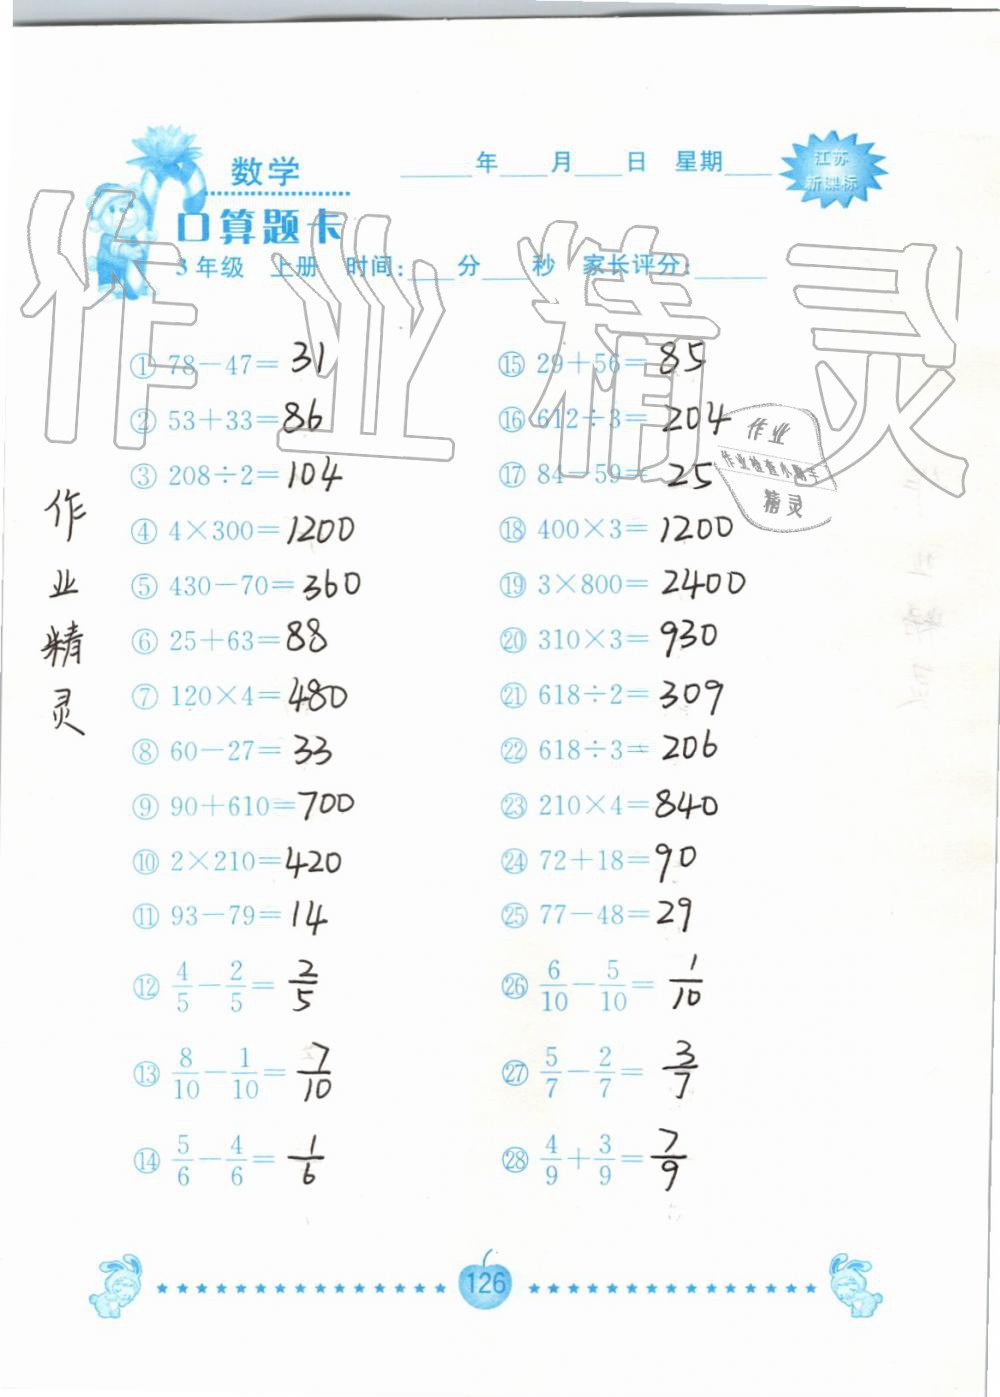 数学
____年____月____日 星期____
江苏
新课标
口算题卡
3年级 上册 时间:____分____秒 家长评分:____
作业精灵
① 78－47＝31
② 53＋33＝86
③ 208÷2＝104
④ 4×300＝1200
⑤ 430－70＝360
⑥ 25＋63＝88
⑦ 120×4＝480
⑧ 60－27＝33
⑨ 90＋610＝700
⑩ 2×210＝420
⑪ 93－79＝14
⑫ 4/5－2/5＝2/5
⑬ 8/10－1/10＝7/10
⑭ 5/6－4/6＝1/6
⑮ 29＋56＝85
⑯ 612÷3＝204
⑰ 84－59＝25
⑱ 400×3＝1200
⑲ 3×800＝2400
⑳ 310×3＝930
㉑ 618÷2＝309
㉒ 618÷3＝206
㉓ 210×4＝840
㉔ 72＋18＝90
㉕ 77－48＝29
㉖ 6/10－5/10＝1/10
㉗ 5/7－2/7＝3/7
㉘ 4/9＋3/9＝7/9
作业
作业检查小助手
精灵
作
业
精
灵
126